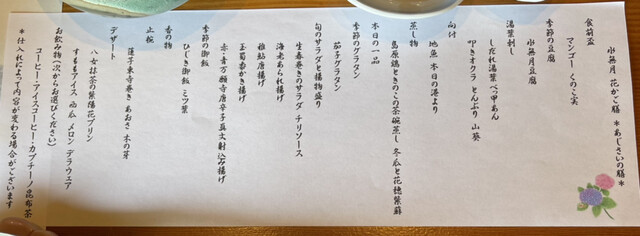 水無月 花かご膳 *あじさいの膳*
食前盃
マンゴー くのこ実
季節の豆腐
水無月豆腐
湯葉刺し
しだれ湯葉 べっ甲あん
叩きオクラ とんぶり 山葵
向付
地魚 本日の港より
蒸し物
島原鶏ときのこの茶碗蒸し 冬瓜と花穂紫蘇
本日の一品
季節のグラタン
茄子グラタン
旬のサラダと揚物盛り
生春巻きのサラダ チリソース
海老あられ揚げ
稚鮎唐揚げ
玉蜀黍かき揚げ
赤・青万願寺唐辛子真丈射込み揚げ
季節の御飯
ひじき御飯 ミツ葉
香の物
止椀
蓮子東寺巻き あおさ 木の芽
デザート
八女抹茶の紫陽花プリン
すももアイス 西瓜 メロン デラウェア
お飲み物(次からお選びください)
コーヒー・アイスコーヒー・カプチーノ・昆布茶
*仕入れによって内容が変わる場合がございます